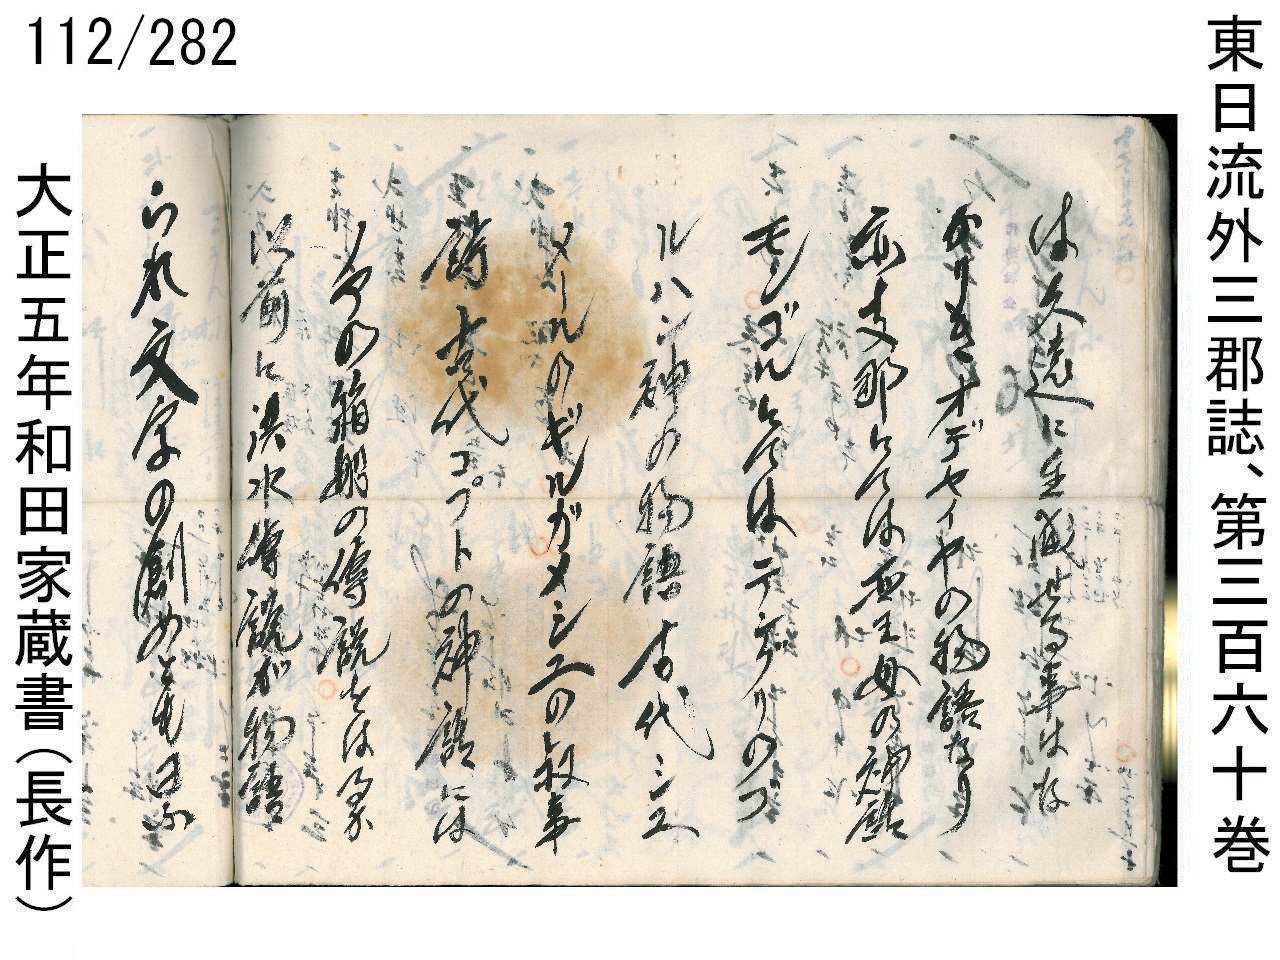 112/282
東日流外三郡誌、第三百六十巻
は久遠に生滅せる事はな
かりきオデセイヤの物語なり
亦支那にては西王母の神話
モンゴルにてはテングリのブ
ルハン神の物語古代シュ
メールのギルガメシュの叙事
詩古代コプトの神話には
ノアの箱船の傳説をは
以前に洪水傳説が物語
られ文字の創めとも
大正五年和田家蔵書(長作)